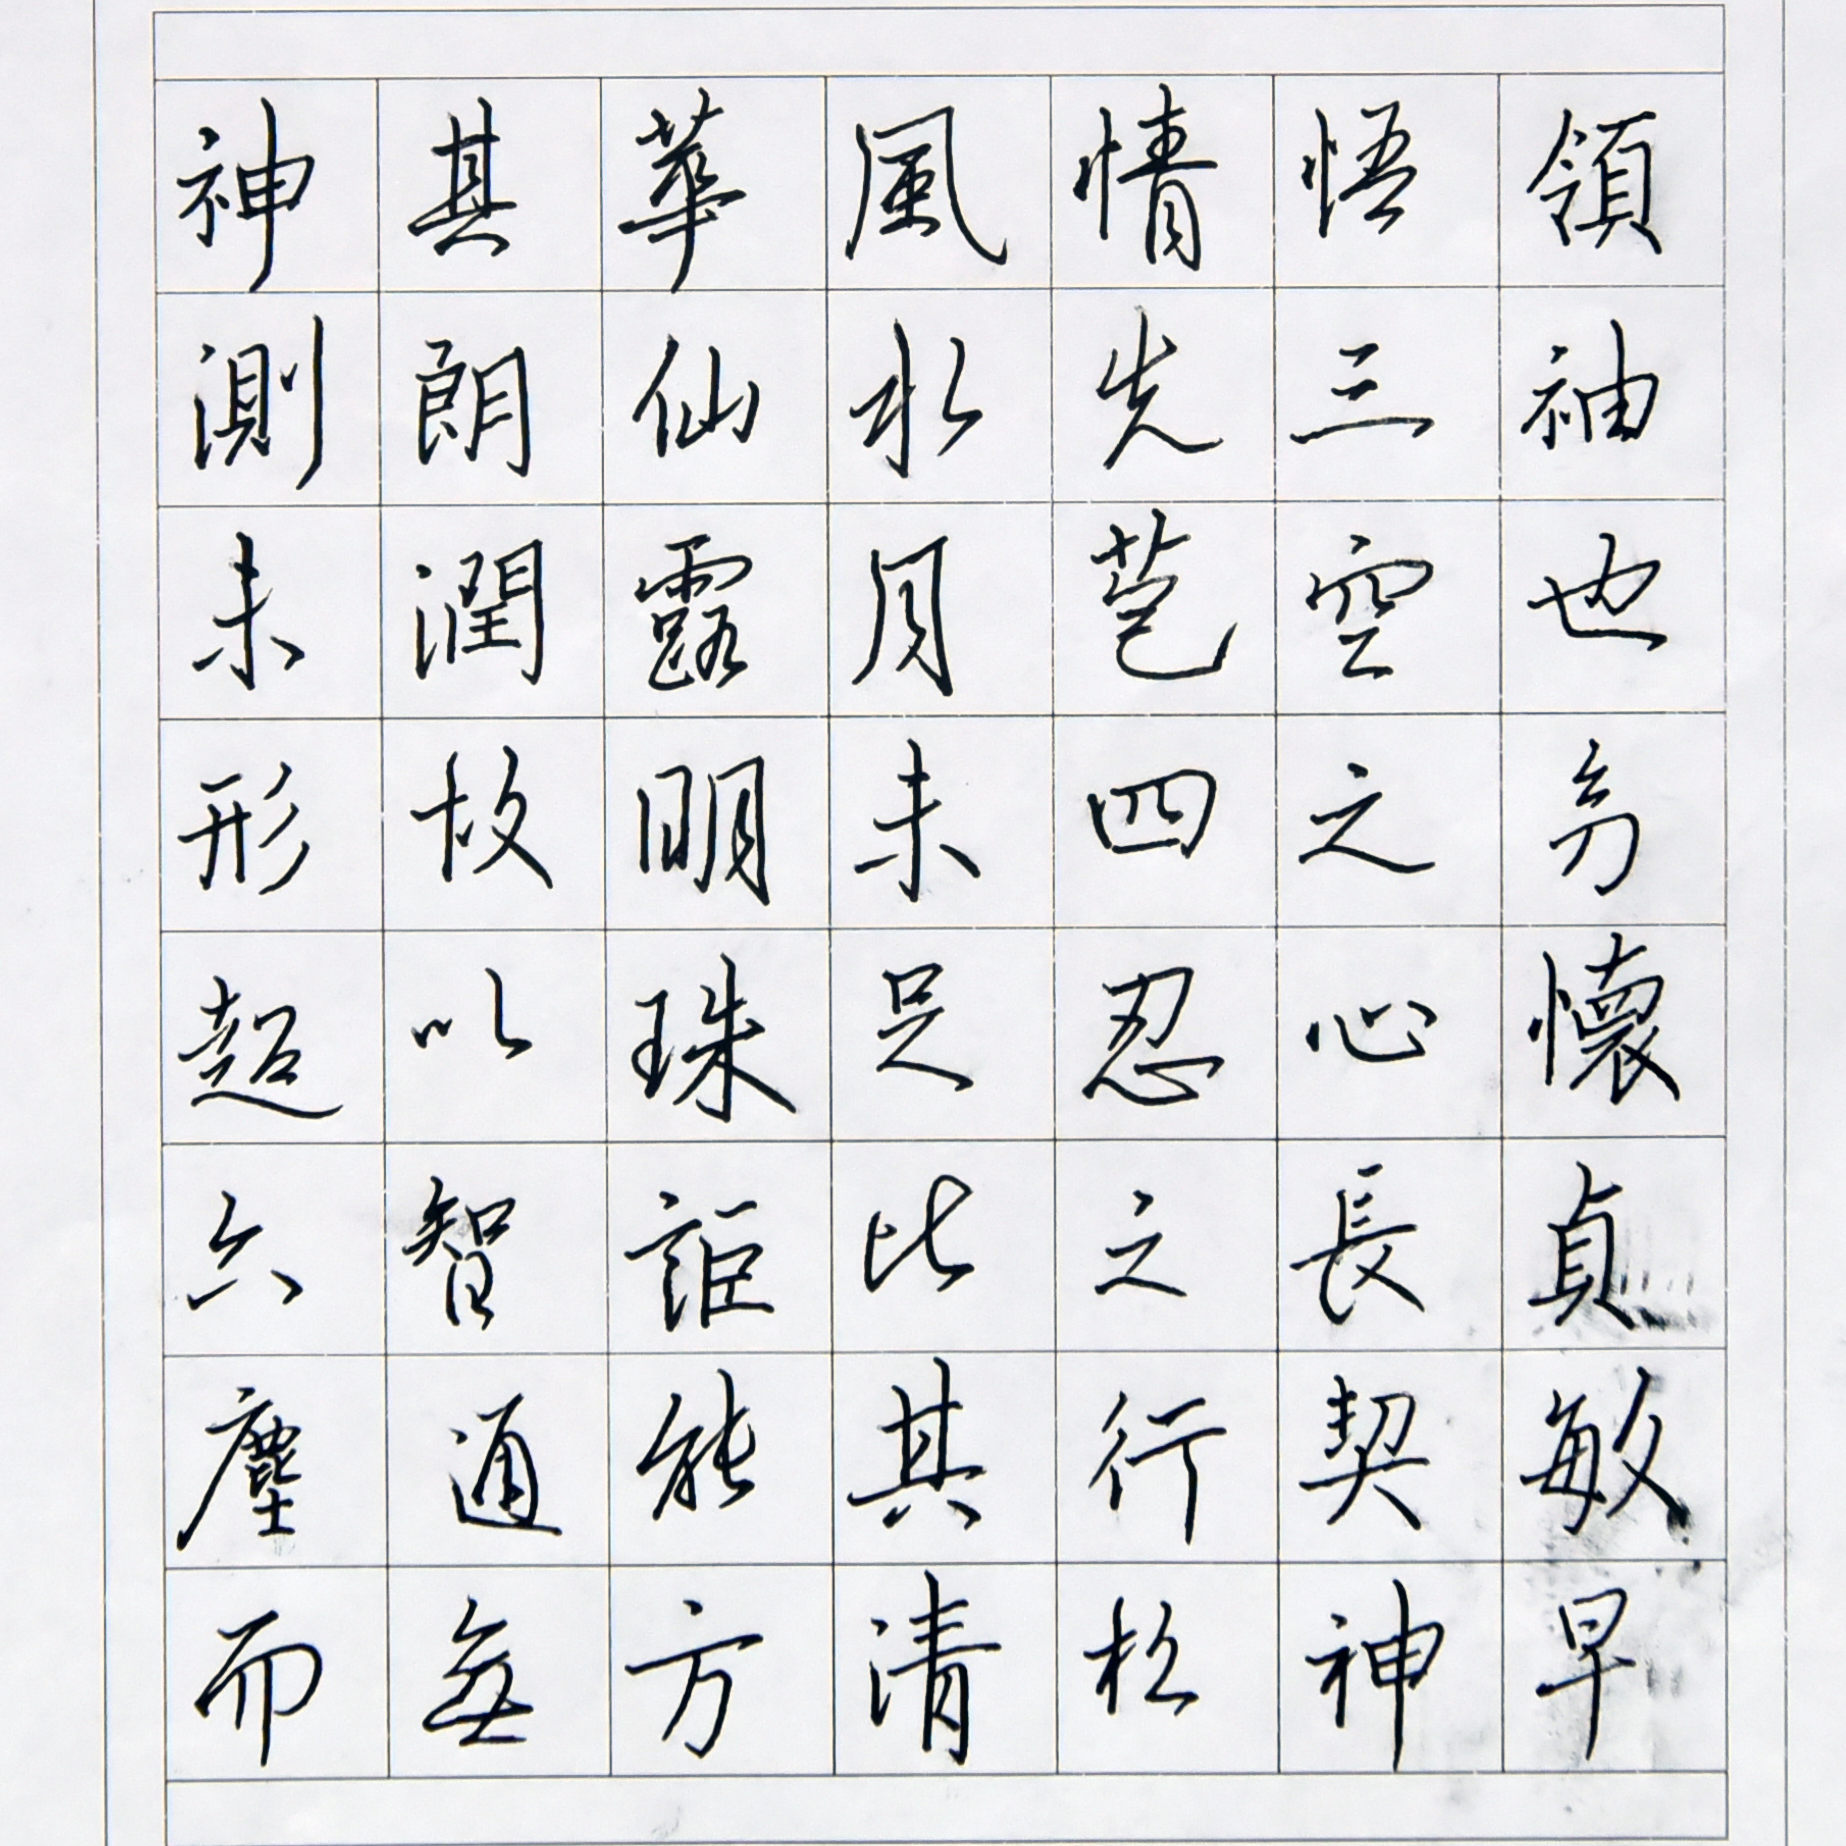 領袖也㓜懷貞敏早
悟三空之心長契神
情先苞四忍之行松
風水月未足比其清
華仙露明珠詎能方
其朗潤故以智通無
神測未形超六塵而